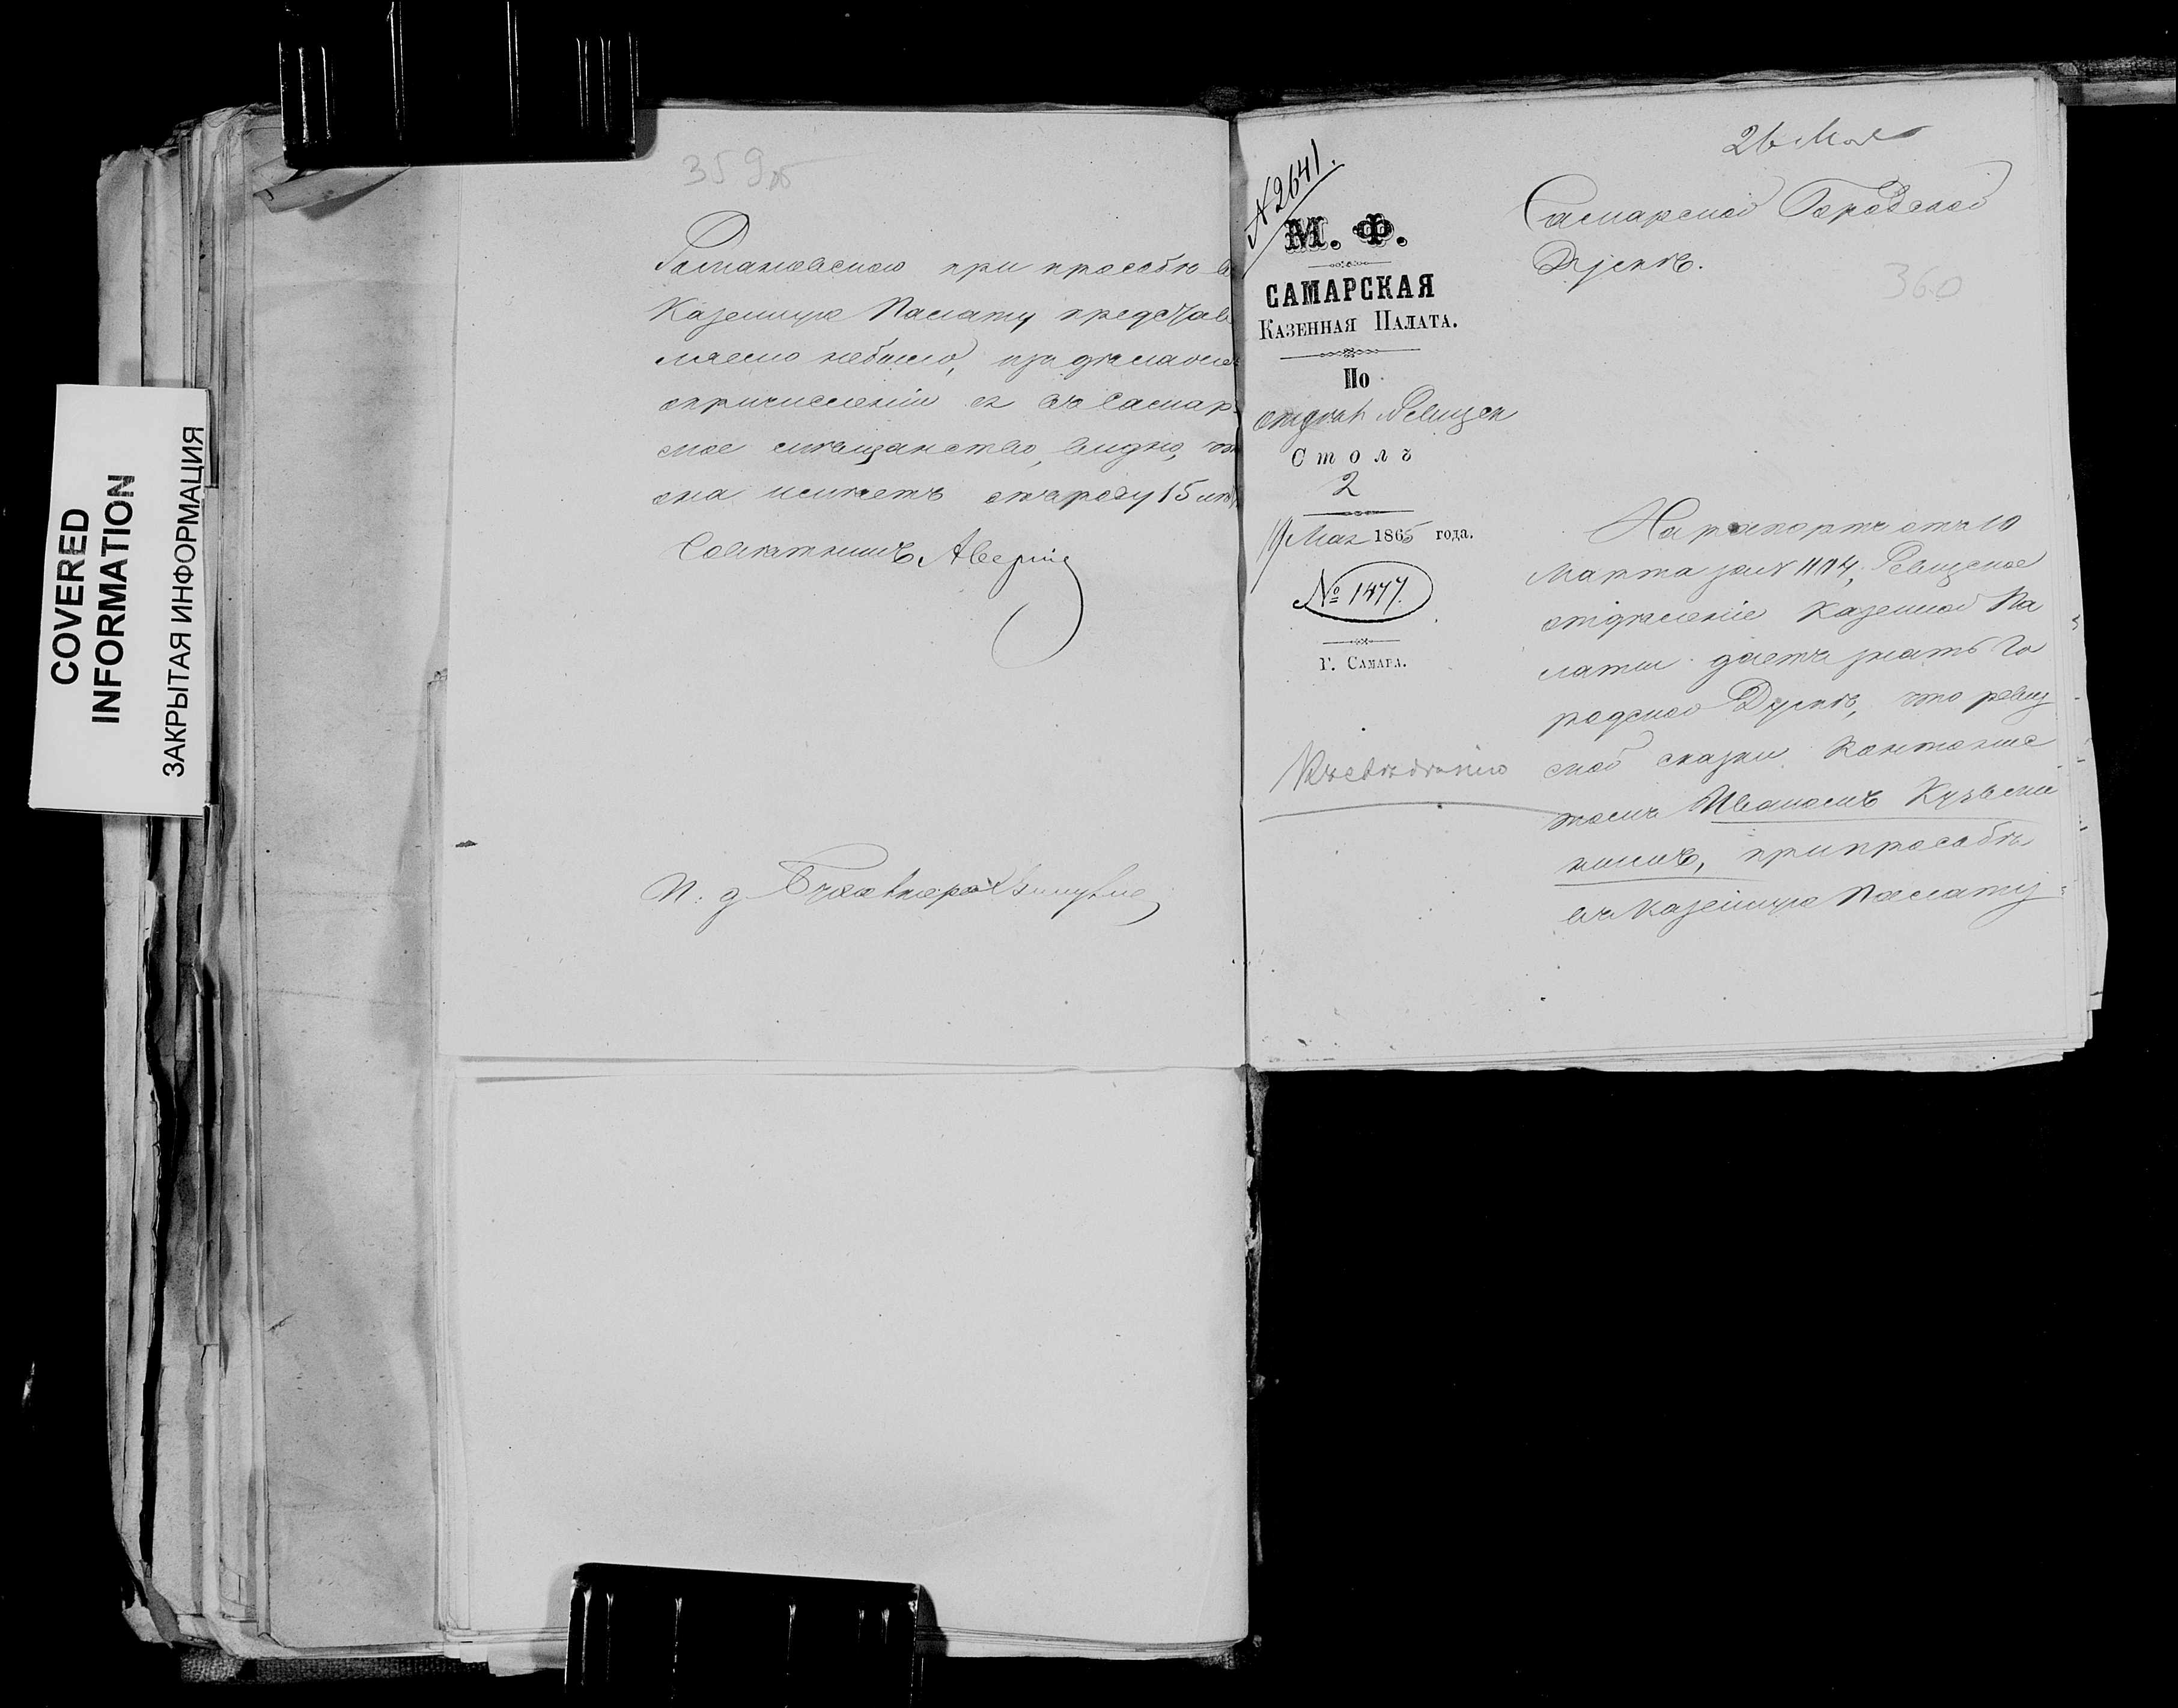 COVERED
INFORMATION
ЗАКРЫТАЯ ИНФОРМАЦИЯ
359об
Романовскою при прособю в
Казенную Палату представ
ляемо небыло, из дѣла о
опричислении ея въ Самар
ское мѣщанство, видно, что
она имѣетъ отъ роду 15 лѣтъ
Совѣтникъ Аверин
И. д. Бухгалтера
№ 2641.
М. Ф.
САМАРСКАЯ
КАЗЕННАЯ ПАЛАТА.
По
отдѣл. Ревизск
Столъ
2
19 Мая 1865 года.
№ 1477.
Г. САМАРА.
Къ свѣдѣнію
26 Мая
Самарской Городской
Думѣ.
360
На рапортъ отъ 10
Марта за № 1104, Ревизское
отдѣленіе Казенной Па
латы даетъ знать Го
родской Думѣ, что ревиз
ской сказки Кантонис
томъ Иваномъ Кузьми
нымъ, при прособѣ
въ Казенную Палату